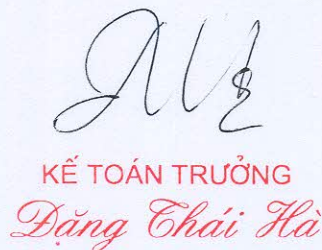 KẾ TOÁN TRƯỞNG
Đặng Thái Hà